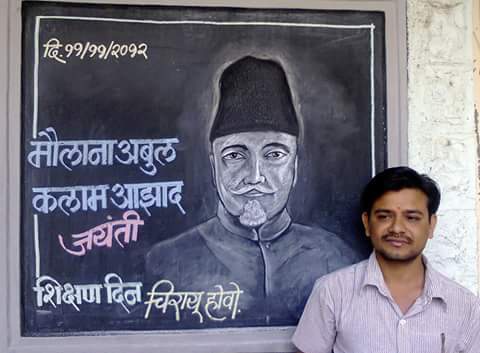 दि. ११/११/२०१२
मौलाना अबुल
कलाम आझाद
जयंती
शिक्षण दिन चिरायू होवो.